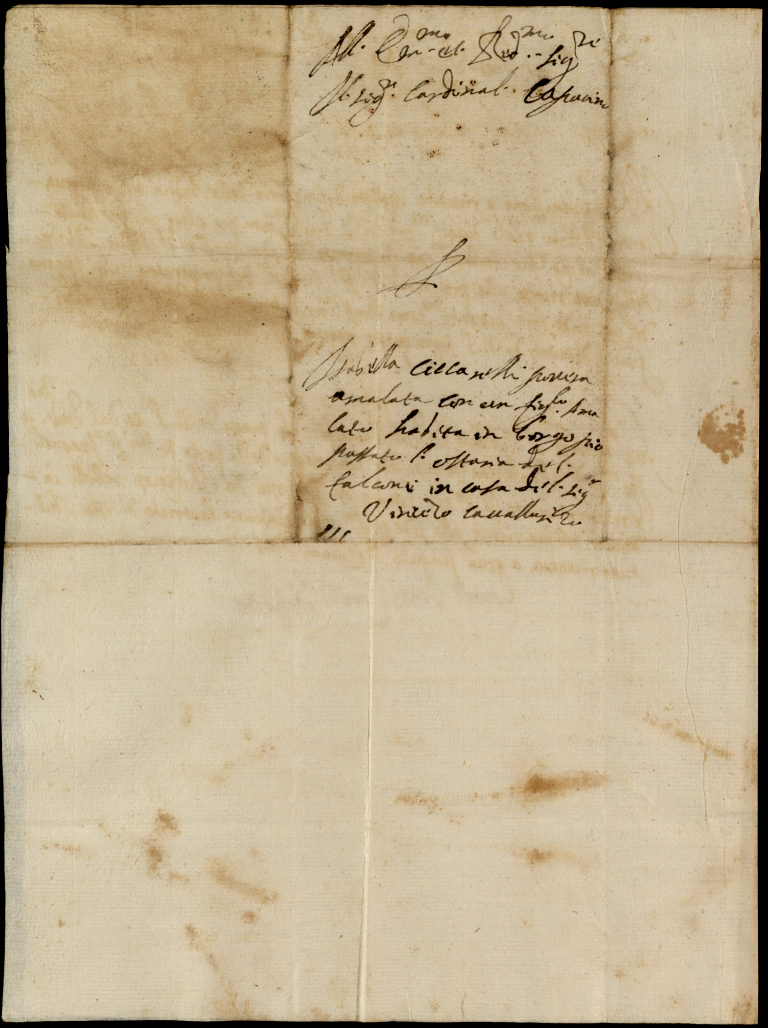 All. Em.mo et. Red.mo sig.re
Il. sig.r Cardinal. Capucino
Isabella Ciccarelli povera
amalata con un figl.lo Ama
lato habita in borgo pio
passato l. ostaria del.
falcone in casa del. sig.r
Vincezo cavallarizo